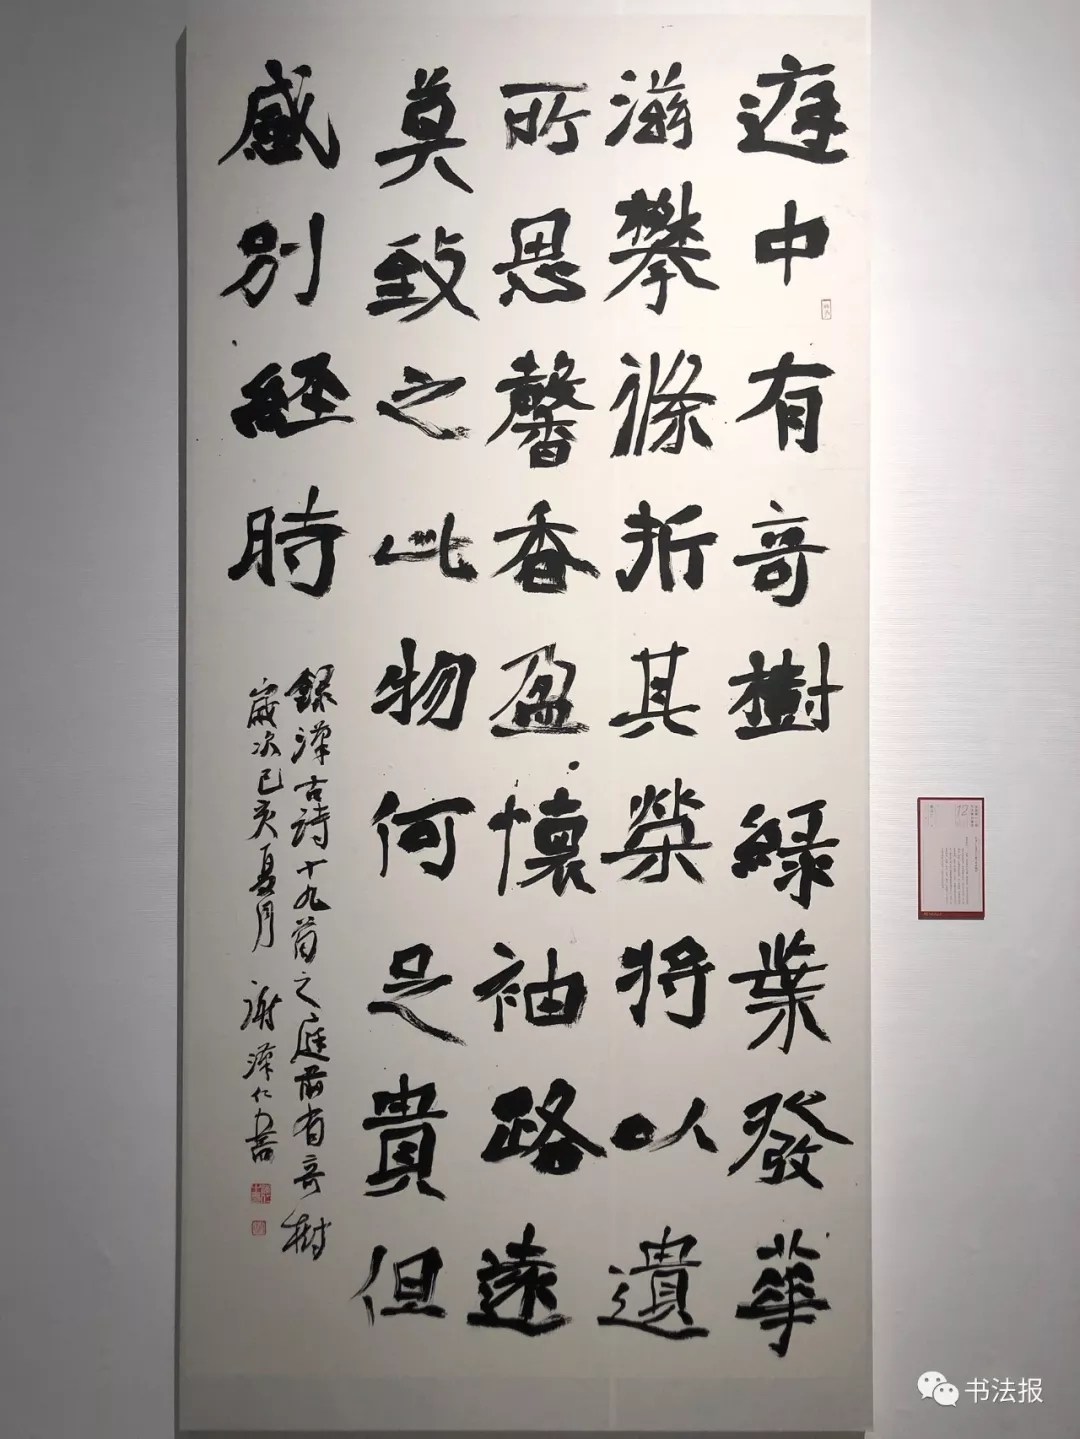 庭中有奇樹綠葉發華
滋攀條折其榮將以遺
所思馨香盈懷袖路遠
莫致之此物何足貴但
感別經時
錄漢古詩十九首之庭前有奇樹
歲次己亥夏月 謝澤仁書
12
书法报